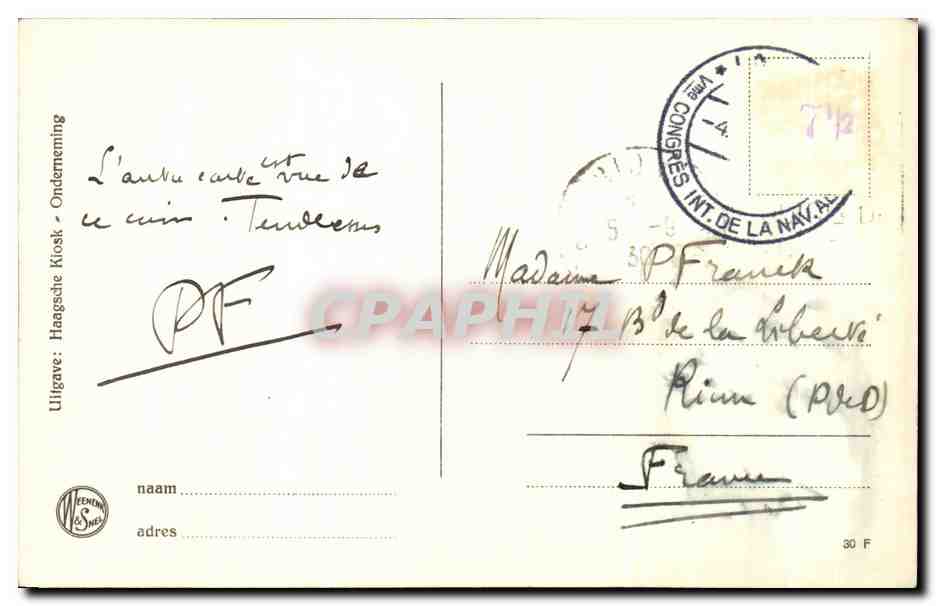 Uitgave: Haagsche Kiosk - Onderneming
L'autre carte est vue de
ce coin. Tendresses
PF
WEENENK & SNEL
naam
adres
Vme CONGRÈS INT. DE LA NAV. AE
4
7½
5 -9
Madame P Franck
17 Bd de la Liberté
Riom (P de D)
France
30 F
CPAPHIL